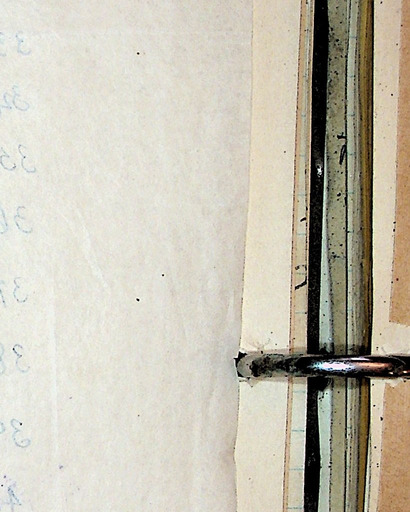 33
34
35
36
37
38
39
4